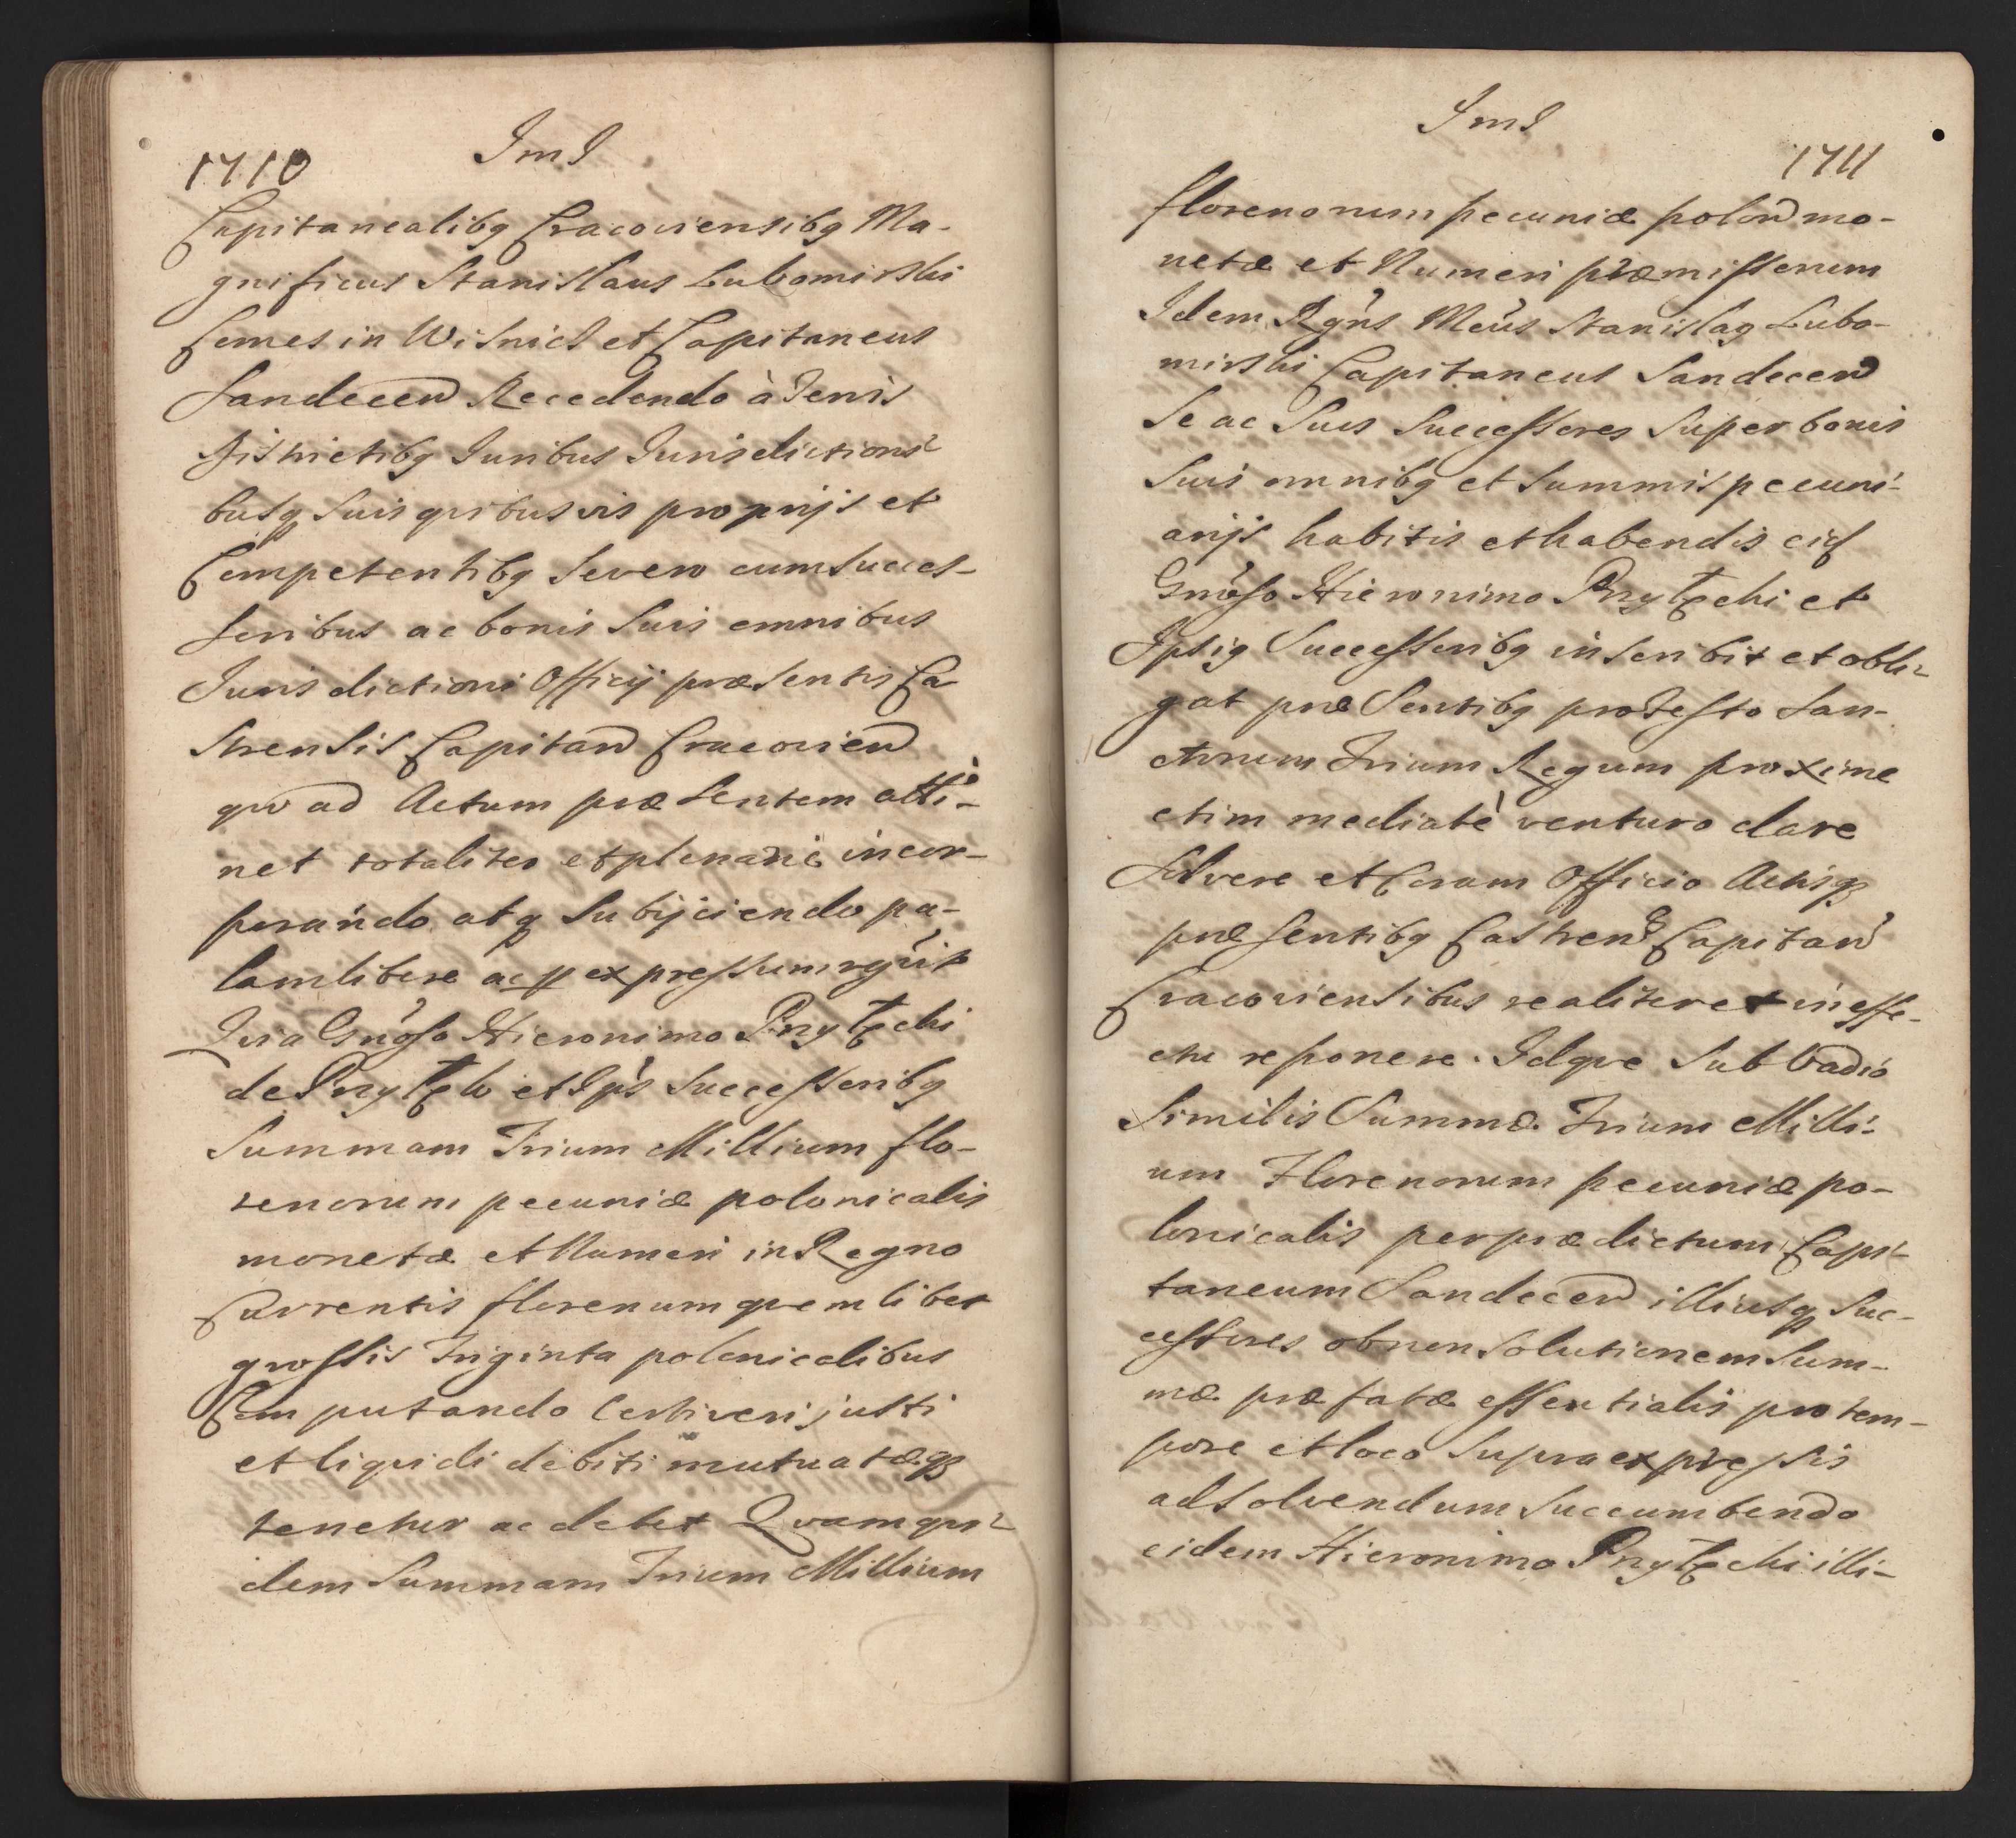 1710
ImI
Capitanealibq Cracoviensibq Ma-
gnificus Stanislaus Lubomirski
Comes in Wisnicz et Capitaneus
Sandecen Recedendo à Terris
Districtibq Iuribus Iurisdictioni-
busq suis quibusvis proprijs et
Competentibq severo cum succes-
soribus ac bonis suis omnibus
Iurisdictioni Officij præsentis Ca
strensis Capitan Cracovien
quo ad Actum præsentem atti-
net totaliter et plenarie incor-
porando atq subijciendo pa-
lam libere ac p expressum rgvit
Quia Gnoso Hieronimo Przyłęcki
de Przyłęk et Ips Successoribq
Summam Trium Millium flo-
renorum pecuniæ polonicalis
monetæ et Numeri in Regno
Currentis florenum quemlibet
grossis Triginta polonicalibus
Computando Certi veri justi
et liquidi debiti mutuatæq
tenetur ac debet Quamqui-
dem Summam Trium Millium
ImI
1711
florenorum pecuniæ polon mo-
netæ et Numeri præmissorum
Idem Rgns Mcus Stanislaq Lubo-
mirski Capitaneus Sandecen
Se ac Suos Successores Super bonis
Suis omnibq et Summis pecuni-
arijs habitis et habendis eid
Gnoso Hieronimo Przyłęcki et
Ipsiq Successoribq inscribit et obli-
gat præsentibq pro Festo San-
ctorum Trium Regum proxime
et immediatè venturo dare
Solvere et Coram Officio Actisq
præsentibq Castren Capitan
Cracoviensibus realiter et in effe-
ctu reponere. Idque Sub Vadio
Similis Summæ Trium Milli-
um Florenorum pecuniæ po-
lonicalis per prædictum Capi-
taneum Sandecen illiusq Suc-
cessores ob non Solutionem Sum-
mæ præfatæ essentialis pro tem-
pore et loco Supra expressis
ad Solvendum Succumbendo
eidem Hieronimo Przyłęcki illi-